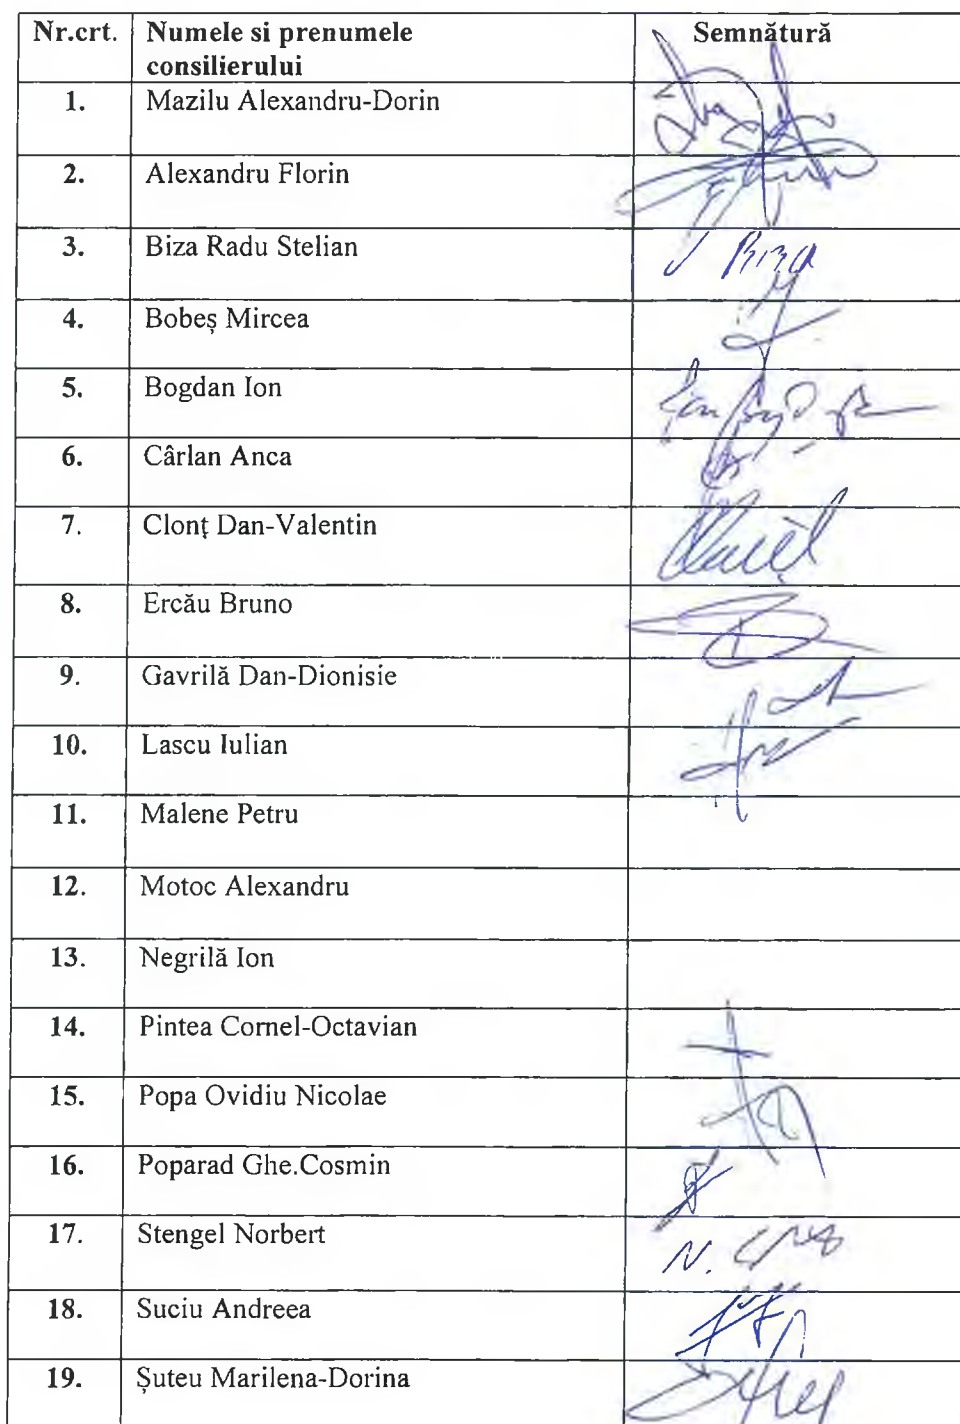 Nr.crt. Numele si prenumele Semnătură
consilierului
1. Mazilu Alexandru-Dorin
2. Alexandru Florin
3. Biza Radu Stelian
4. Bobeș Mircea
5. Bogdan Ion
6. Cârlan Anca
7. Clonț Dan-Valentin
8. Ercău Bruno
9. Gavrilă Dan-Dionisie
10. Lascu Iulian
11. Malene Petru
12. Motoc Alexandru
13. Negrilă Ion
14. Pintea Cornel-Octavian
15. Popa Ovidiu Nicolae
16. Poparad Ghe.Cosmin
17. Stengel Norbert
18. Suciu Andreea
19. Șuteu Marilena-Dorina